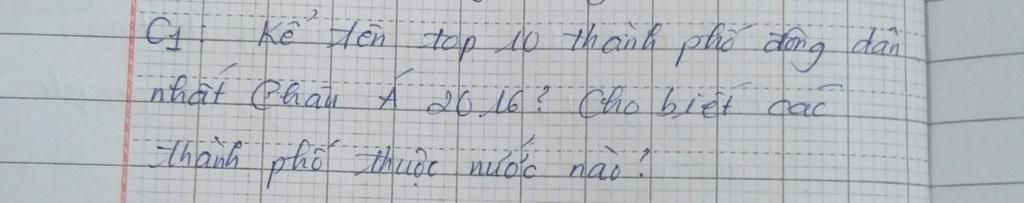 C1: Kể tên top 10 thành phố đông dân
nhất Châu Á 2016? Cho biết các
thành phố thuộc nước nào?